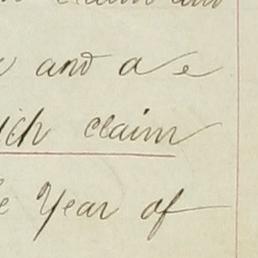 claim and
and a e
ich claim
e Year of